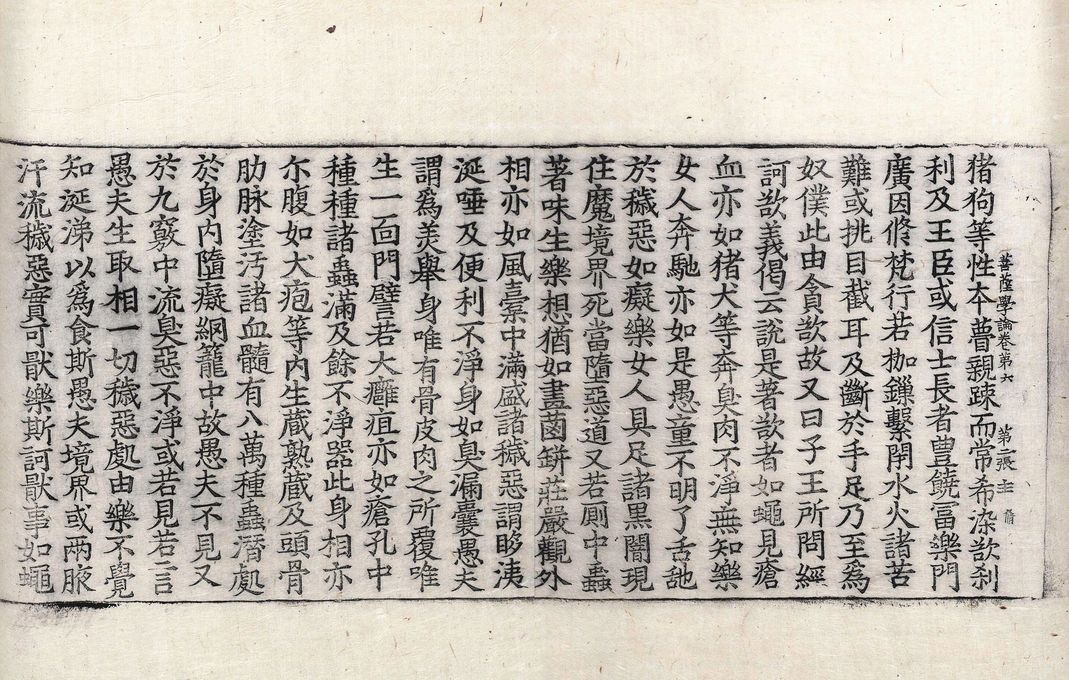 菩薩學論卷第六 第二張 主
猪狗等性本曹親踈而常希染欲刹
利及王臣或信士長者豊饒富樂門
廣因脩梵行若枷鏁繫閇水火諸苦
難或挑目截耳及斷於手足乃至爲
奴僕此由貪欲故又曰子王所問經
訶欲義偈云說是著欲者如蠅見瘡
血亦如猪犬等奔臭肉不淨無知樂
女人奔馳亦如是愚童不明了舌舐
於穢惡如癡樂女人具足諸黑闇現
住魔境界死當墮惡道又若厠中蟲
著味生樂想猶如畫菌缾莊嚴觀外
相亦如風橐中滿盛諸穢惡謂眵洟
涎唾及便利不淨身如臭漏囊愚夫
謂爲美舉身唯有骨皮肉之所覆唯
生一面門譬若大癰疽亦如瘡孔中
種種諸蟲滿及餘不淨器此身相亦
尓腹如犬疱等內生蔵熟蔵及頭骨
肋脉塗汚諸血髓有八萬種蟲潛處
於身內隨癡網籠中故愚夫不見又
於九竅中流臭惡不淨或若見若言
愚夫生取相一切穢惡處由樂不覺
知涎涕以爲食斯愚夫境界或兩腋
汗流穢惡實可猒樂斯訶猒事如蠅